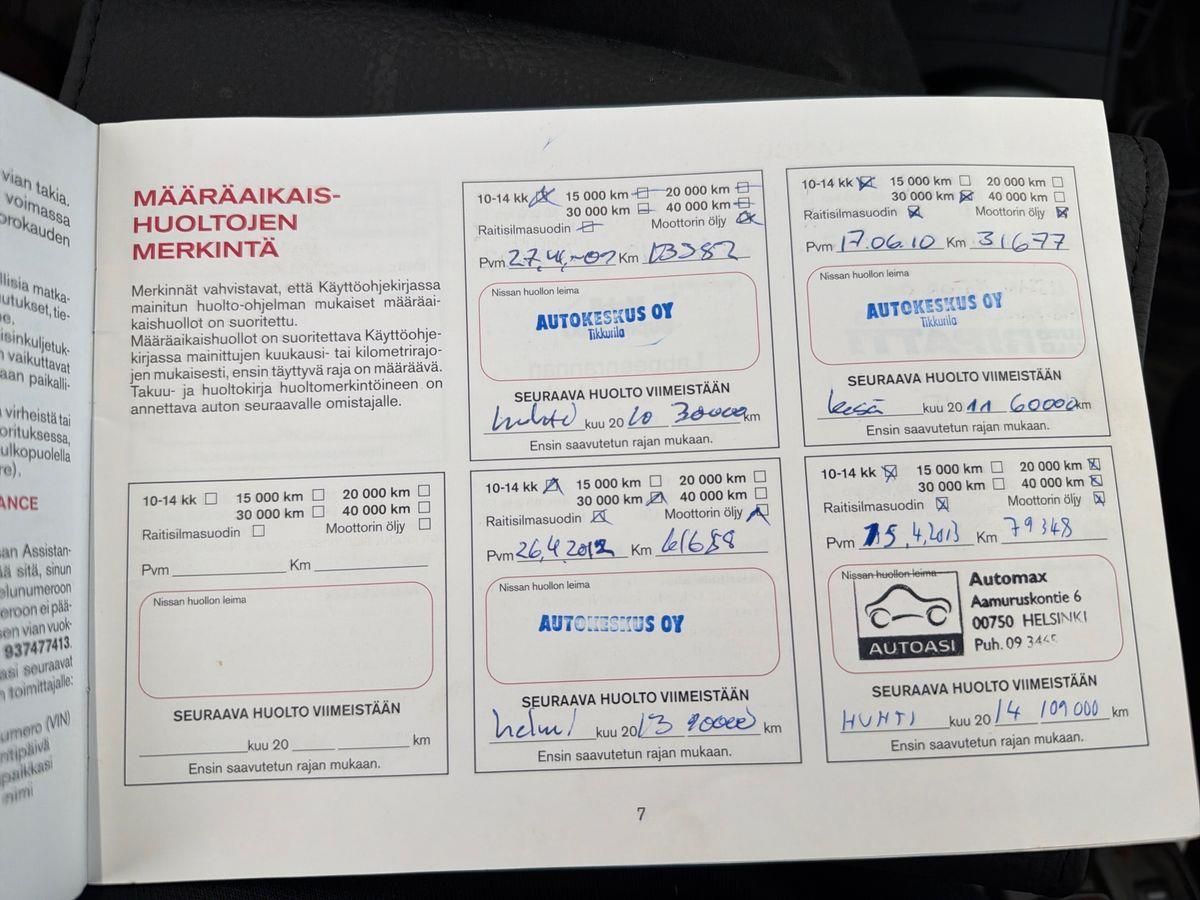 vian takia.
voimassa
orokauden
llisia matka-
utukset, tie-
e.
isinkuljetuk-
n vaikuttavat
aan paikalli-
virheistä tai
orituksessa,
ulkopuolella
re).
ANCE
san Assistan-
ää sitä, sinun
elunumeroon
eroon ei pää-
sen vian vuok-
937477413.
asi seuraavat
n toimittajalle:
umero (VIN)
ntipäivä
paikkasi
nimi
MÄÄRÄAIKAIS-
HUOLTOJEN
MERKINTÄ
Merkinnät vahvistavat, että Käyttöohjekirjassa
mainitun huolto-ohjelman mukaiset määräai-
kaishuollot on suoritettu.
Määräaikaishuollot on suoritettava Käyttöohje-
kirjassa mainittujen kuukausi- tai kilometrirajo-
jen mukaisesti, ensin täyttyvä raja on määräävä.
Takuu- ja huoltokirja huoltomerkintöineen on
annettava auton seuraavalle omistajalle.
10-14 kk 15 000 km 20 000 km
30 000 km 40 000 km
Raitisilmasuodin Moottorin öljy
Pvm Km
Nissan huollon leima
AUTOKESKUS OY
Tikkurila
SEURAAVA HUOLTO VIIMEISTÄÄN
huhti kuu 20 10 30000 km
Ensin saavutetun rajan mukaan.
10-14 kk 15 000 km 20 000 km
30 000 km 40 000 km
Raitisilmasuodin Moottorin öljy
Pvm 17.06.10 Km 31677
Nissan huollon leima
AUTOKESKUS OY
Tikkurila
SEURAAVA HUOLTO VIIMEISTÄÄN
kesä kuu 20 11 60000 km
Ensin saavutetun rajan mukaan.
10-14 kk 15 000 km 20 000 km
30 000 km 40 000 km
Raitisilmasuodin Moottorin öljy
Pvm Km
Nissan huollon leima
SEURAAVA HUOLTO VIIMEISTÄÄN
kuu 20 km
Ensin saavutetun rajan mukaan.
10-14 kk 15 000 km 20 000 km
30 000 km 40 000 km
Raitisilmasuodin Moottorin öljy
Pvm 26.4.2012 Km 61688
Nissan huollon leima
AUTOKESKUS OY
SEURAAVA HUOLTO VIIMEISTÄÄN
helmi kuu 20 13 90000 km
Ensin saavutetun rajan mukaan.
10-14 kk 15 000 km 20 000 km
30 000 km 40 000 km
Raitisilmasuodin Moottorin öljy
Pvm 15.4.2013 Km 79348
Nissan huollon leima
AUTOASI
Automax
Aamuruskontie 6
00750 HELSINKI
Puh. 09
SEURAAVA HUOLTO VIIMEISTÄÄN
HUHTI kuu 20 14 109 000 km
Ensin saavutetun rajan mukaan.
7